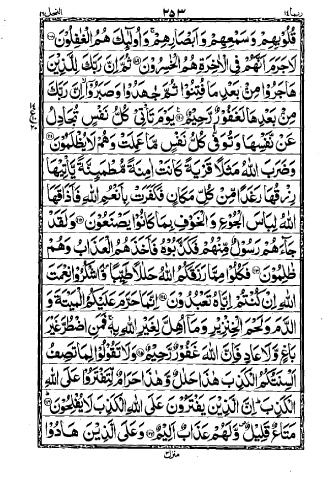 ربما ١٤ ٢٥٣ النحل ١٦
قُلُوبِهِمْ وَسَمْعِهِمْ وَاَبْصَارِهِمْ ۚ وَاُولٰٓئِكَ هُمُ الْغٰفِلُوْنَ ۝١٠٨
لَاجَرَمَ اَنَّهُمْ فِى الْاٰخِرَةِ هُمُ الْخٰسِرُوْنَ ۝١٠٩ ثُمَّ اِنَّ رَبَّكَ لِلَّذِيْنَ
هَاجَرُوْا مِنْۢ بَعْدِ مَا فُتِنُوْا ثُمَّ جٰهَدُوْا وَصَبَرُوْٓا ۙ اِنَّ رَبَّكَ
مِنْۢ بَعْدِهَا لَغَفُوْرٌ رَّحِيْمٌ ۝١١٠ يَوْمَ تَاْتِىْ كُلُّ نَفْسٍ تُجَادِلُ
عَنْ نَّفْسِهَا وَتُوَفّٰى كُلُّ نَفْسٍ مَّا عَمِلَتْ وَهُمْ لَا يُظْلَمُوْنَ ۝١١١
وَضَرَبَ اللّٰهُ مَثَلًا قَرْيَةً كَانَتْ اٰمِنَةً مُّطْمَئِنَّةً يَّاْتِيْهَا
رِزْقُهَا رَغَدًا مِّنْ كُلِّ مَكَانٍ فَكَفَرَتْ بِاَنْعُمِ اللّٰهِ فَاَذَاقَهَا
اللّٰهُ لِبَاسَ الْجُوْعِ وَالْخَوْفِ بِمَا كَانُوْا يَصْنَعُوْنَ ۝١١٢ وَلَقَدْ
جَآءَهُمْ رَسُوْلٌ مِّنْهُمْ فَكَذَّبُوْهُ فَاَخَذَهُمُ الْعَذَابُ وَهُمْ
ظٰلِمُوْنَ ۝١١٣ فَكُلُوْا مِمَّا رَزَقَكُمُ اللّٰهُ حَلٰلًا طَيِّبًا ۪ وَّاشْكُرُوْا نِعْمَتَ
اللّٰهِ اِنْ كُنْتُمْ اِيَّاهُ تَعْبُدُوْنَ ۝١١٤ اِنَّمَا حَرَّمَ عَلَيْكُمُ الْمَيْتَةَ وَ
الدَّمَ وَلَحْمَ الْخِنْزِيْرِ وَمَآ اُهِلَّ لِغَيْرِ اللّٰهِ بِهٖ ۚ فَمَنِ اضْطُرَّ غَيْرَ
بَاغٍ وَّلَا عَادٍ فَاِنَّ اللّٰهَ غَفُوْرٌ رَّحِيْمٌ ۝١١٥ وَلَا تَقُوْلُوْا لِمَا تَصِفُ
اَلْسِنَتُكُمُ الْكَذِبَ هٰذَا حَلٰلٌ وَّهٰذَا حَرَامٌ لِّتَفْتَرُوْا عَلَى اللّٰهِ
الْكَذِبَ ۭ اِنَّ الَّذِيْنَ يَفْتَرُوْنَ عَلَى اللّٰهِ الْكَذِبَ لَا يُفْلِحُوْنَ ۝١١٦
مَتَاعٌ قَلِيْلٌ ۠ وَّلَهُمْ عَذَابٌ اَلِيْمٌ ۝١١٧ وَعَلَى الَّذِيْنَ هَادُوْا
منزل ٣